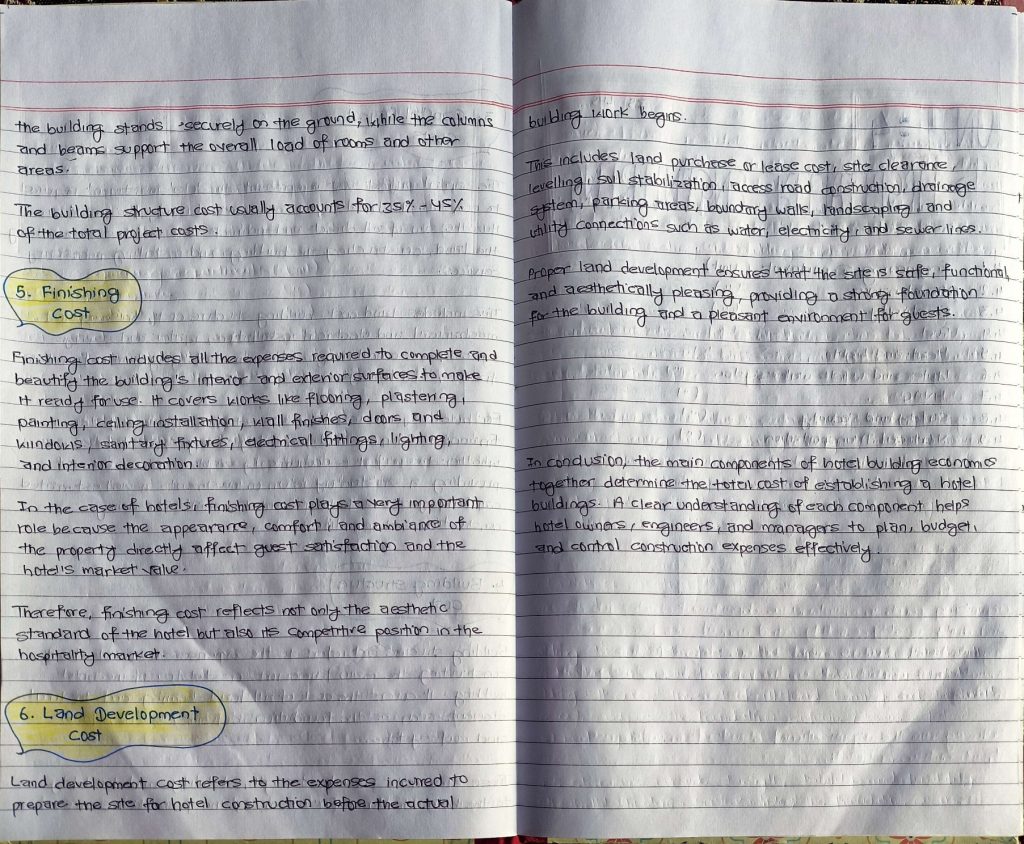 the building stands securely on the ground, while the columns
and beams support the overall load of rooms and other
areas.
The building structure cost usually accounts for 35% - 45%
of the total project costs.
5. Finishing
Cost
Finishing cost includes all the expenses required to complete and
beautify the building's interior and exterior surfaces to make
it ready for use. It covers works like flooring, plastering,
painting, ceiling installation, wall finishes, doors and
windows, sanitary fixtures, electrical fittings, lighting,
and interior decoration.
In the case of hotels, finishing cost plays a very important
role because the appearance, comfort, and ambiance of
the property directly affect guest satisfaction and the
hotel's market value.
Therefore, finishing cost reflects not only the aesthetic
standard of the hotel but also its competitive position in the
hospitality market.
6. Land Development
Cost
Land development cost refers to the expenses incurred to
prepare the site for hotel construction before the actual
building work begins.
This includes land purchase or lease cost, site clearance,
levelling, soil stabilization, access road construction, drainage
system, parking areas, boundary walls, landscaping, and
utility connections such as water, electricity, and sewer lines.
Proper land development ensures that the site is safe, functional
and aesthetically pleasing, providing a strong foundation
for the building and a pleasant environment for guests.
In conclusion, the main components of hotel building economis
together determine the total cost of establishing a hotel
buildings. A clear understanding of each component helps
hotel owners, engineers, and managers to plan, budget,
and control construction expenses effectively.